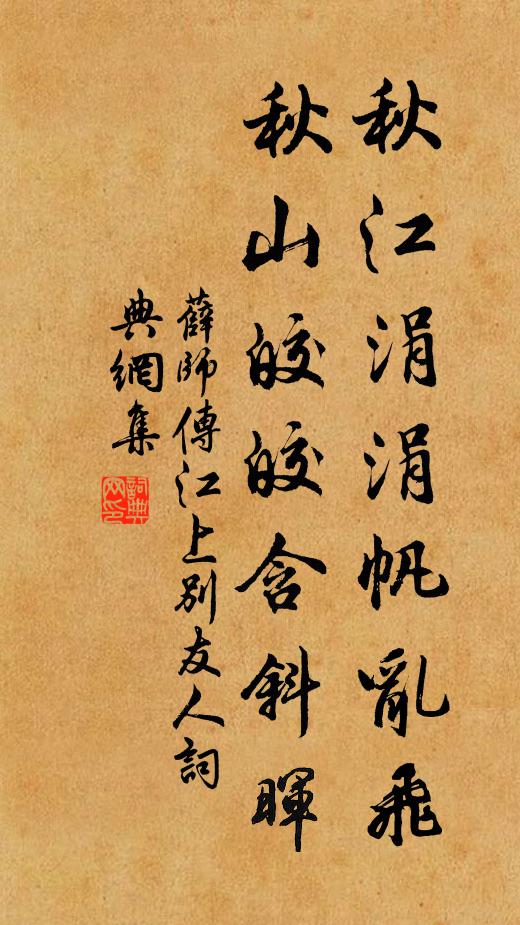 秋江涓涓帆亂飛
秋山皎皎含斜暉
薛師傅江上別友人詞
典網集
詞典
网印